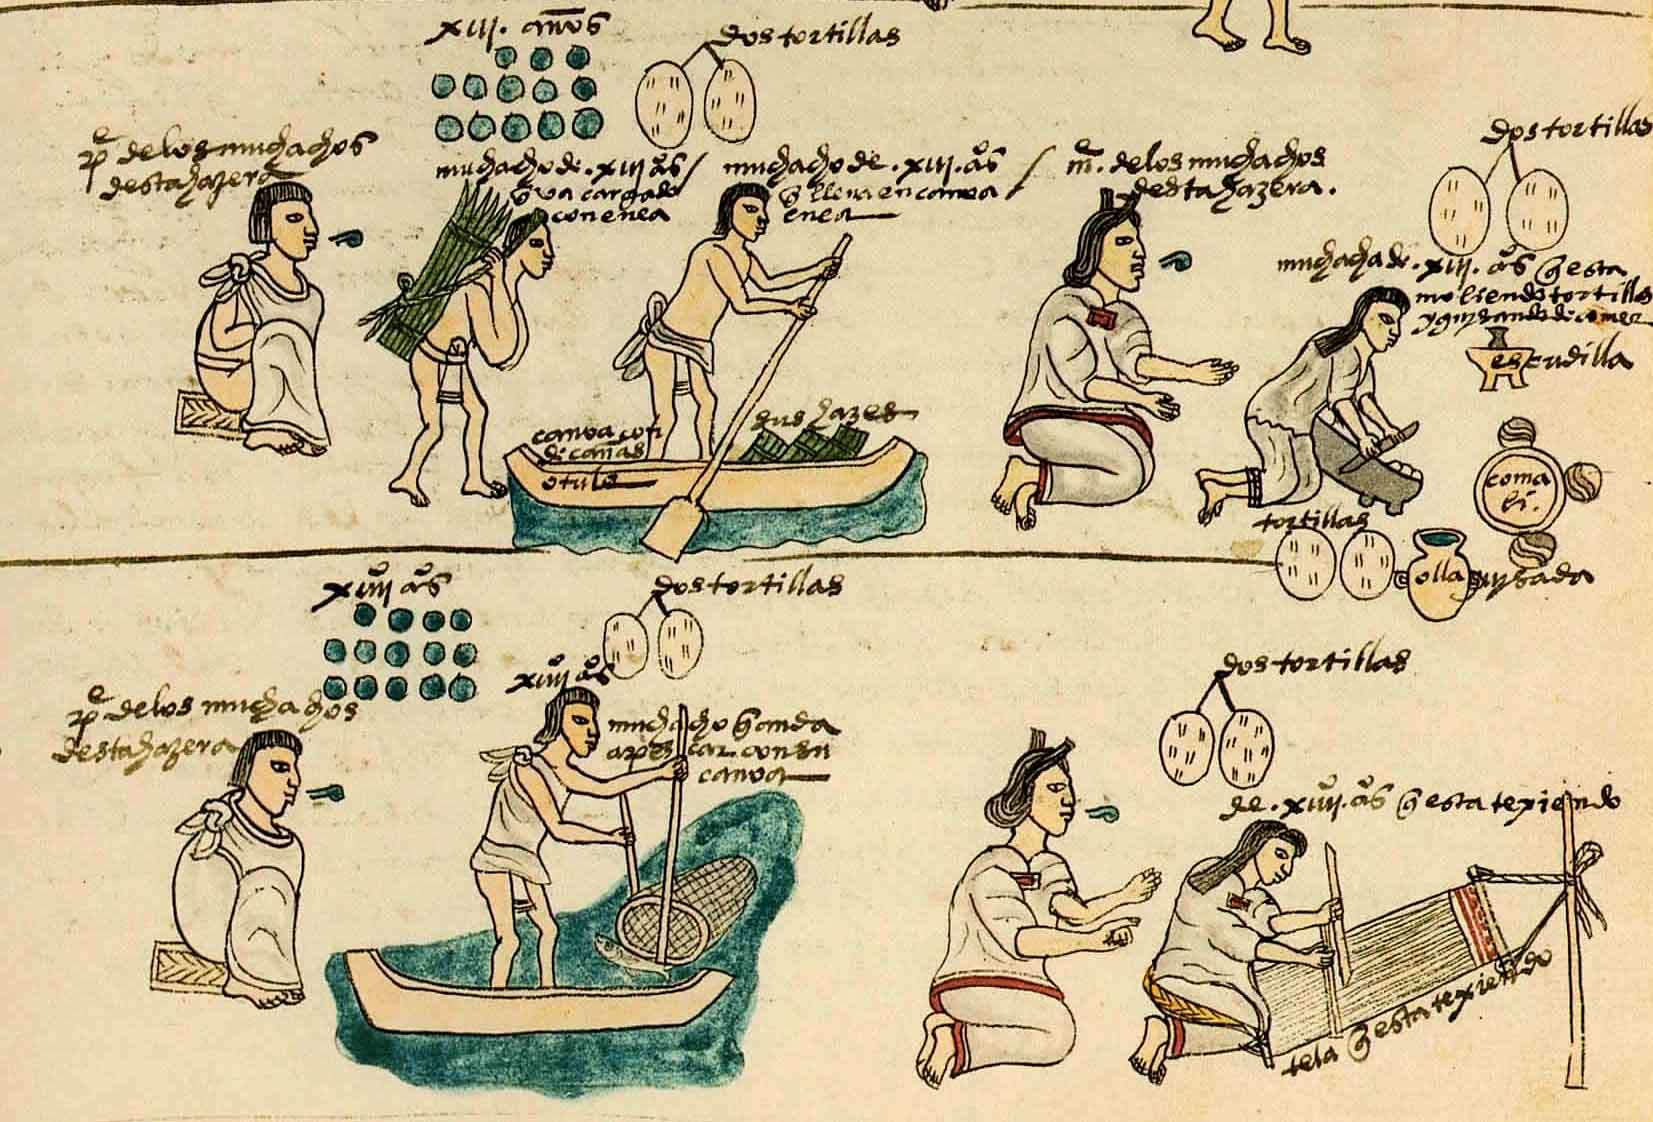 xiij. años
dos tortillas
pe de los muchachos
desta hazera
muchacho de .xiij as
q va cargado
con enea
muchacho de .xiij. as
q lleva en canoa
enea
me. de los muchachos
desta hazera.
dos tortillas
muchacha de .xiij. as q esta
moliendo tortillas
y guysando de comer
escudilla
sus hazes
canoa con
di cañas
o tule
coma
li.
tortillas
olla guysada
xiiij as
dos tortillas
xiiij as
pe de los muchachos
desta hazera
muchacho q anda
a pescar con su
canoa
dos tortillas
de .xiiij. as q esta texiendo
tela q esta texiendo